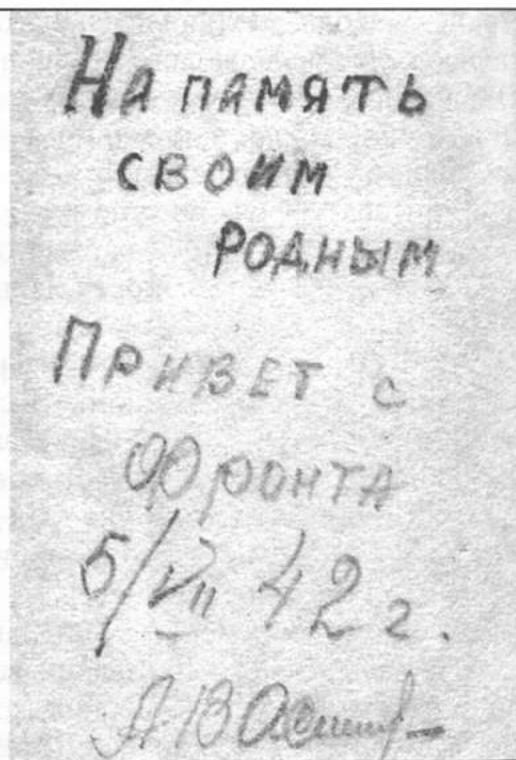 На память
своим
родным
Привет с
фронта
5/VII 42 г.